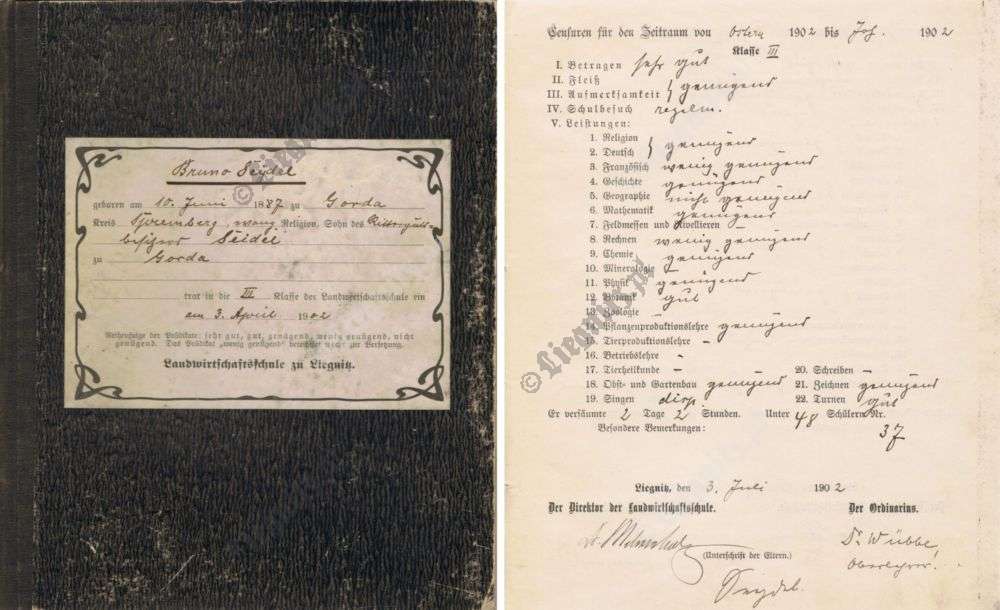 Bruno Seidel
geboren am 10. Juni 1887 zu Gorda
Kreis Spremberg, evang Religion, Sohn des Ritterguts-
besitzers Seidel
zu Gorda
trat in die III Klasse der Landwirtschaftsschule ein
am 3. April 1902
Reihenfolge der Prädikate: sehr gut, gut, genügend, wenig genügend, nicht
genügend. Das Prädikat „wenig genügend“ berechtigt nicht zur Versetzung.
Landwirtschaftsschule zu Liegnitz.
Censuren für den Zeitraum von Ostern 1902 bis Joh. 1902
Klasse III
I. Betragen sehr gut
II. Fleiß
III. Aufmerksamkeit } genügend
IV. Schulbesuch regelm.
V. Leistungen:
1. Religion
2. Deutsch } genügend
3. Französisch wenig genügend
4. Geschichte genügend
5. Geographie nicht genügend
6. Mathematik genügend
7. Feldmessen und Nivellieren –
8. Rechnen wenig genügend
9. Chemie genügend
10. Mineralogie –
11. Physik genügend
12. Botanik gut
13. Zoologie –
14. Pflanzenproduktionslehre genügend
15. Tierproduktionslehre –
16. Betriebslehre –
17. Tierheilkunde – 20. Schreiben –
18. Obst- und Gartenbau genügend 21. Zeichnen genügend
19. Singen disp 22. Turnen gut
Er versäumte 2 Tage 2 Stunden. Unter 48 Schülern Nr.
37
Besondere Bemerkungen:
Liegnitz, den 3. Juli 1902
Der Direktor der Landwirtschaftsschule. Der Ordinarius.
Dr. Wübbe,
Oberlehrer.
(Unterschrift der Eltern.)
Seydel.
© Liegnitz.pl